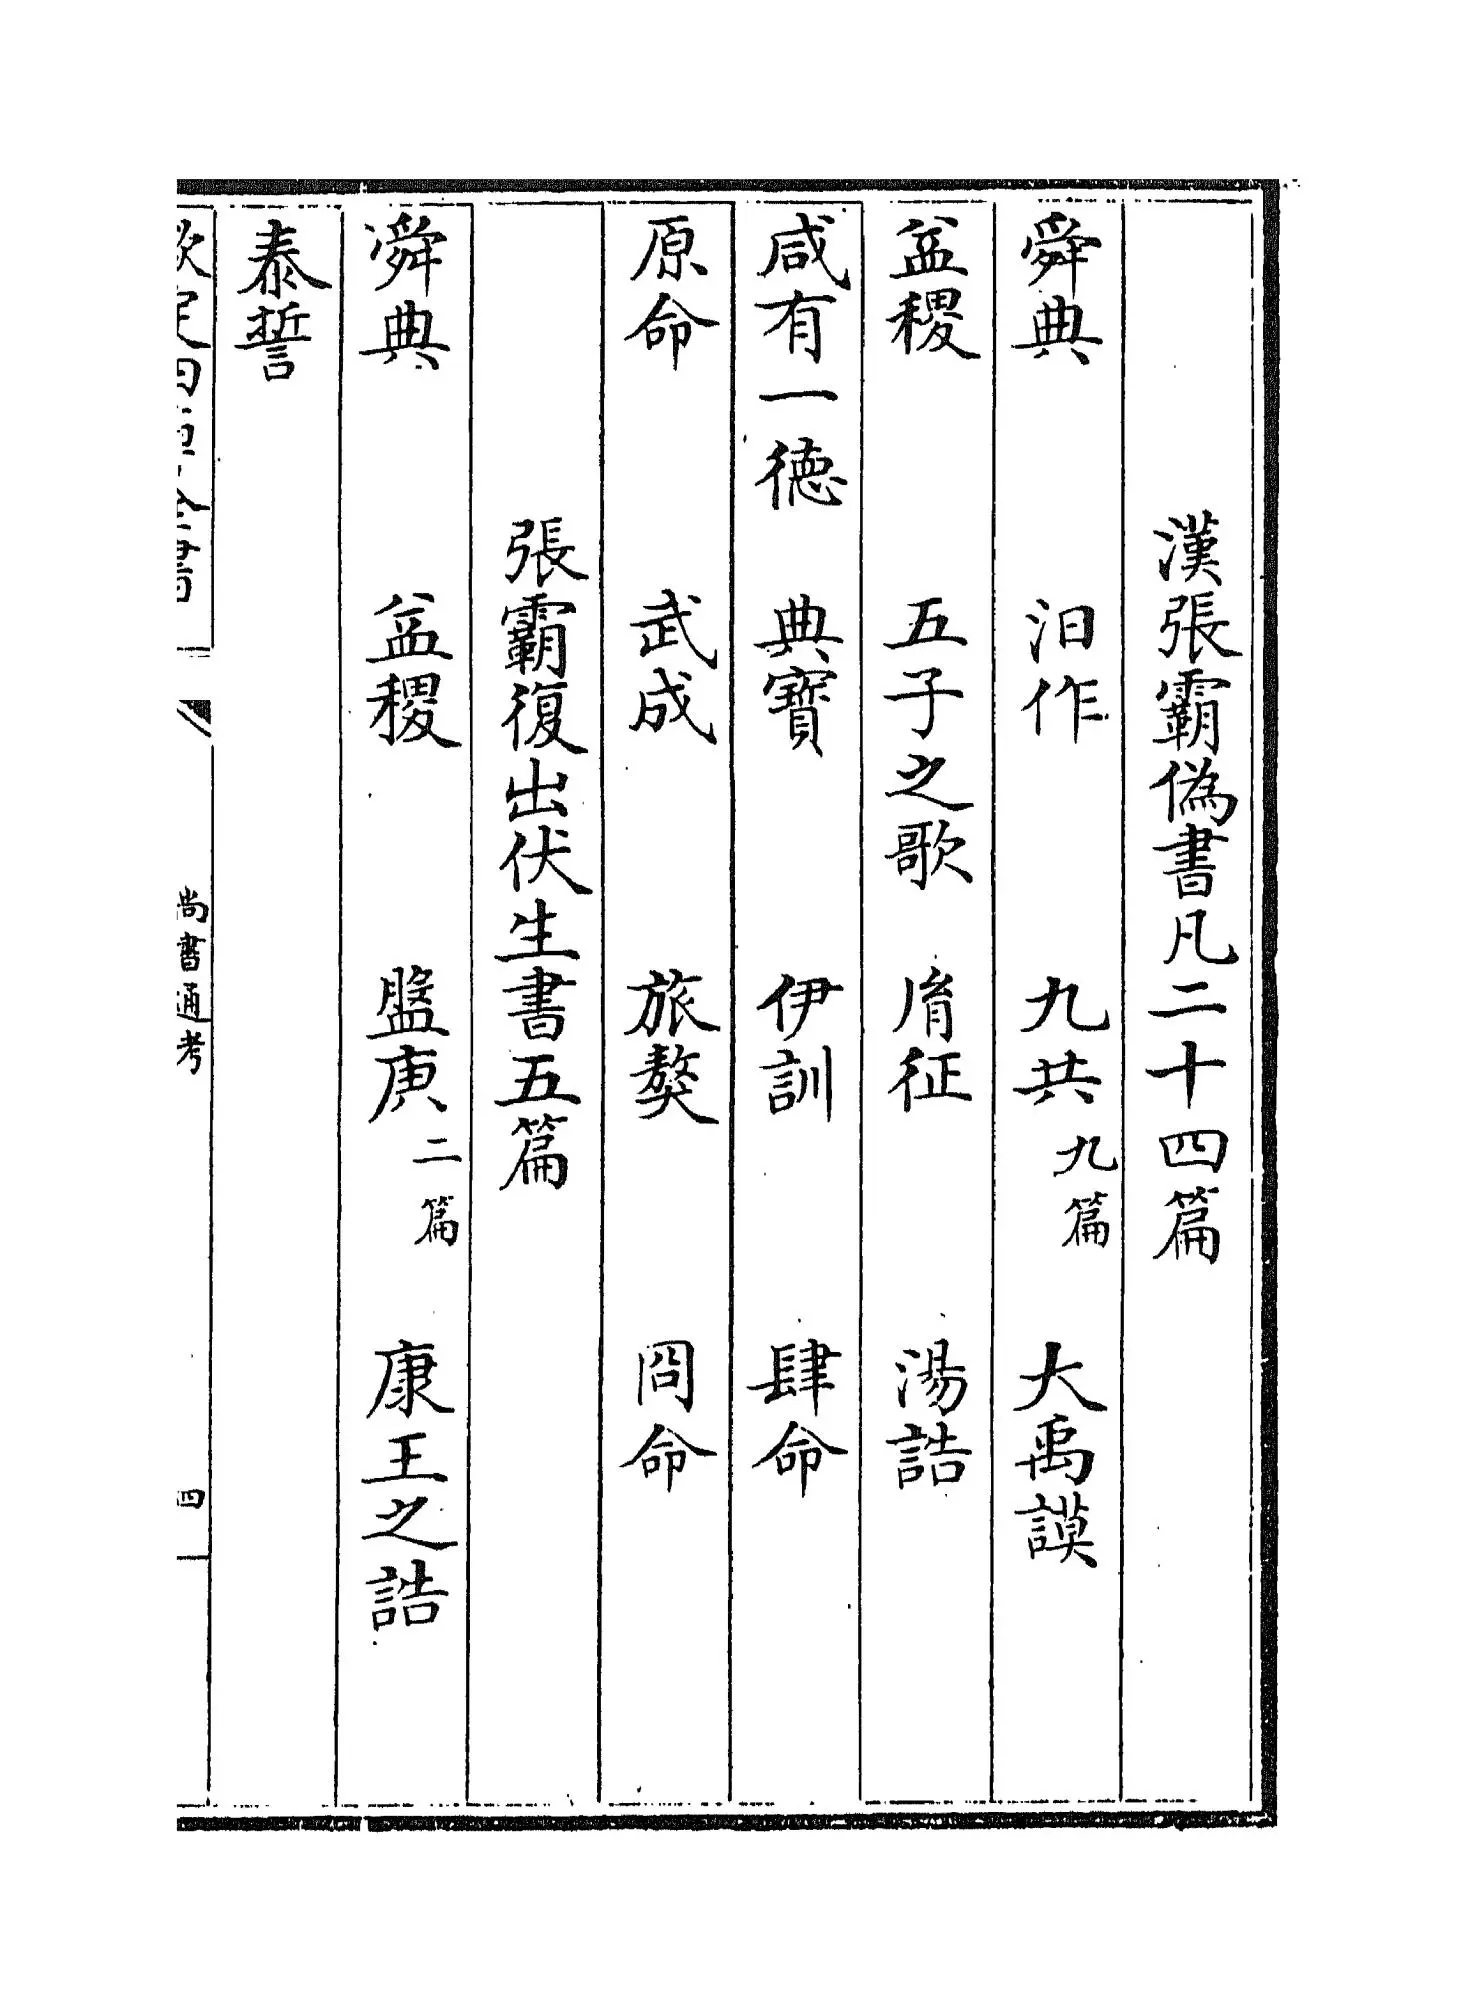 漢張霸偽書凡二十四篇
舜典 汨作 九共九篇 大禹謨
益稷 五子之歌 胤征 湯誥
咸有一德 典寶 伊訓 肆命
原命 武成 旅獒 冏命
張霸復出伏生書五篇
舜典 益稷 盤庚二篇 康王之誥
泰誓
欽定四庫全書 尚書通考 四